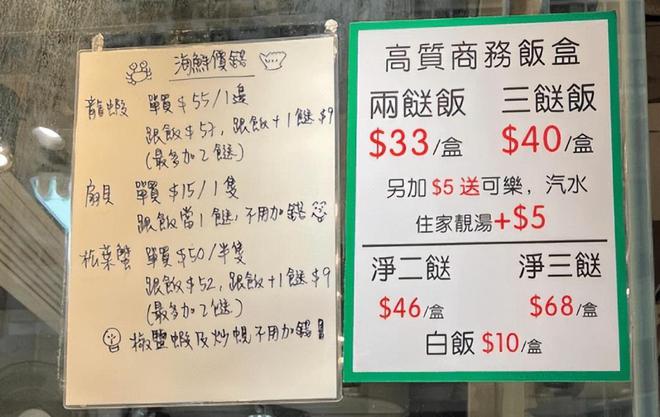 海鮮價錢
龍蝦 單買$55/1邊
跟飯$57, 跟飯+1餸$9
(最多加2餸)
扇貝 單買$15/1隻
跟飯當1餸, 不用加錢
松葉蟹 單買$50/半隻
跟飯$52, 跟飯+1餸$9
(最多加2餸)
椒鹽蝦及炒蜆不用加錢!
高質商務飯盒
兩餸飯 三餸飯
$33/盒 $40/盒
另加$5送可樂, 汽水
住家靚湯+$5
淨二餸 淨三餸
$46/盒 $68/盒
白飯$10/盒